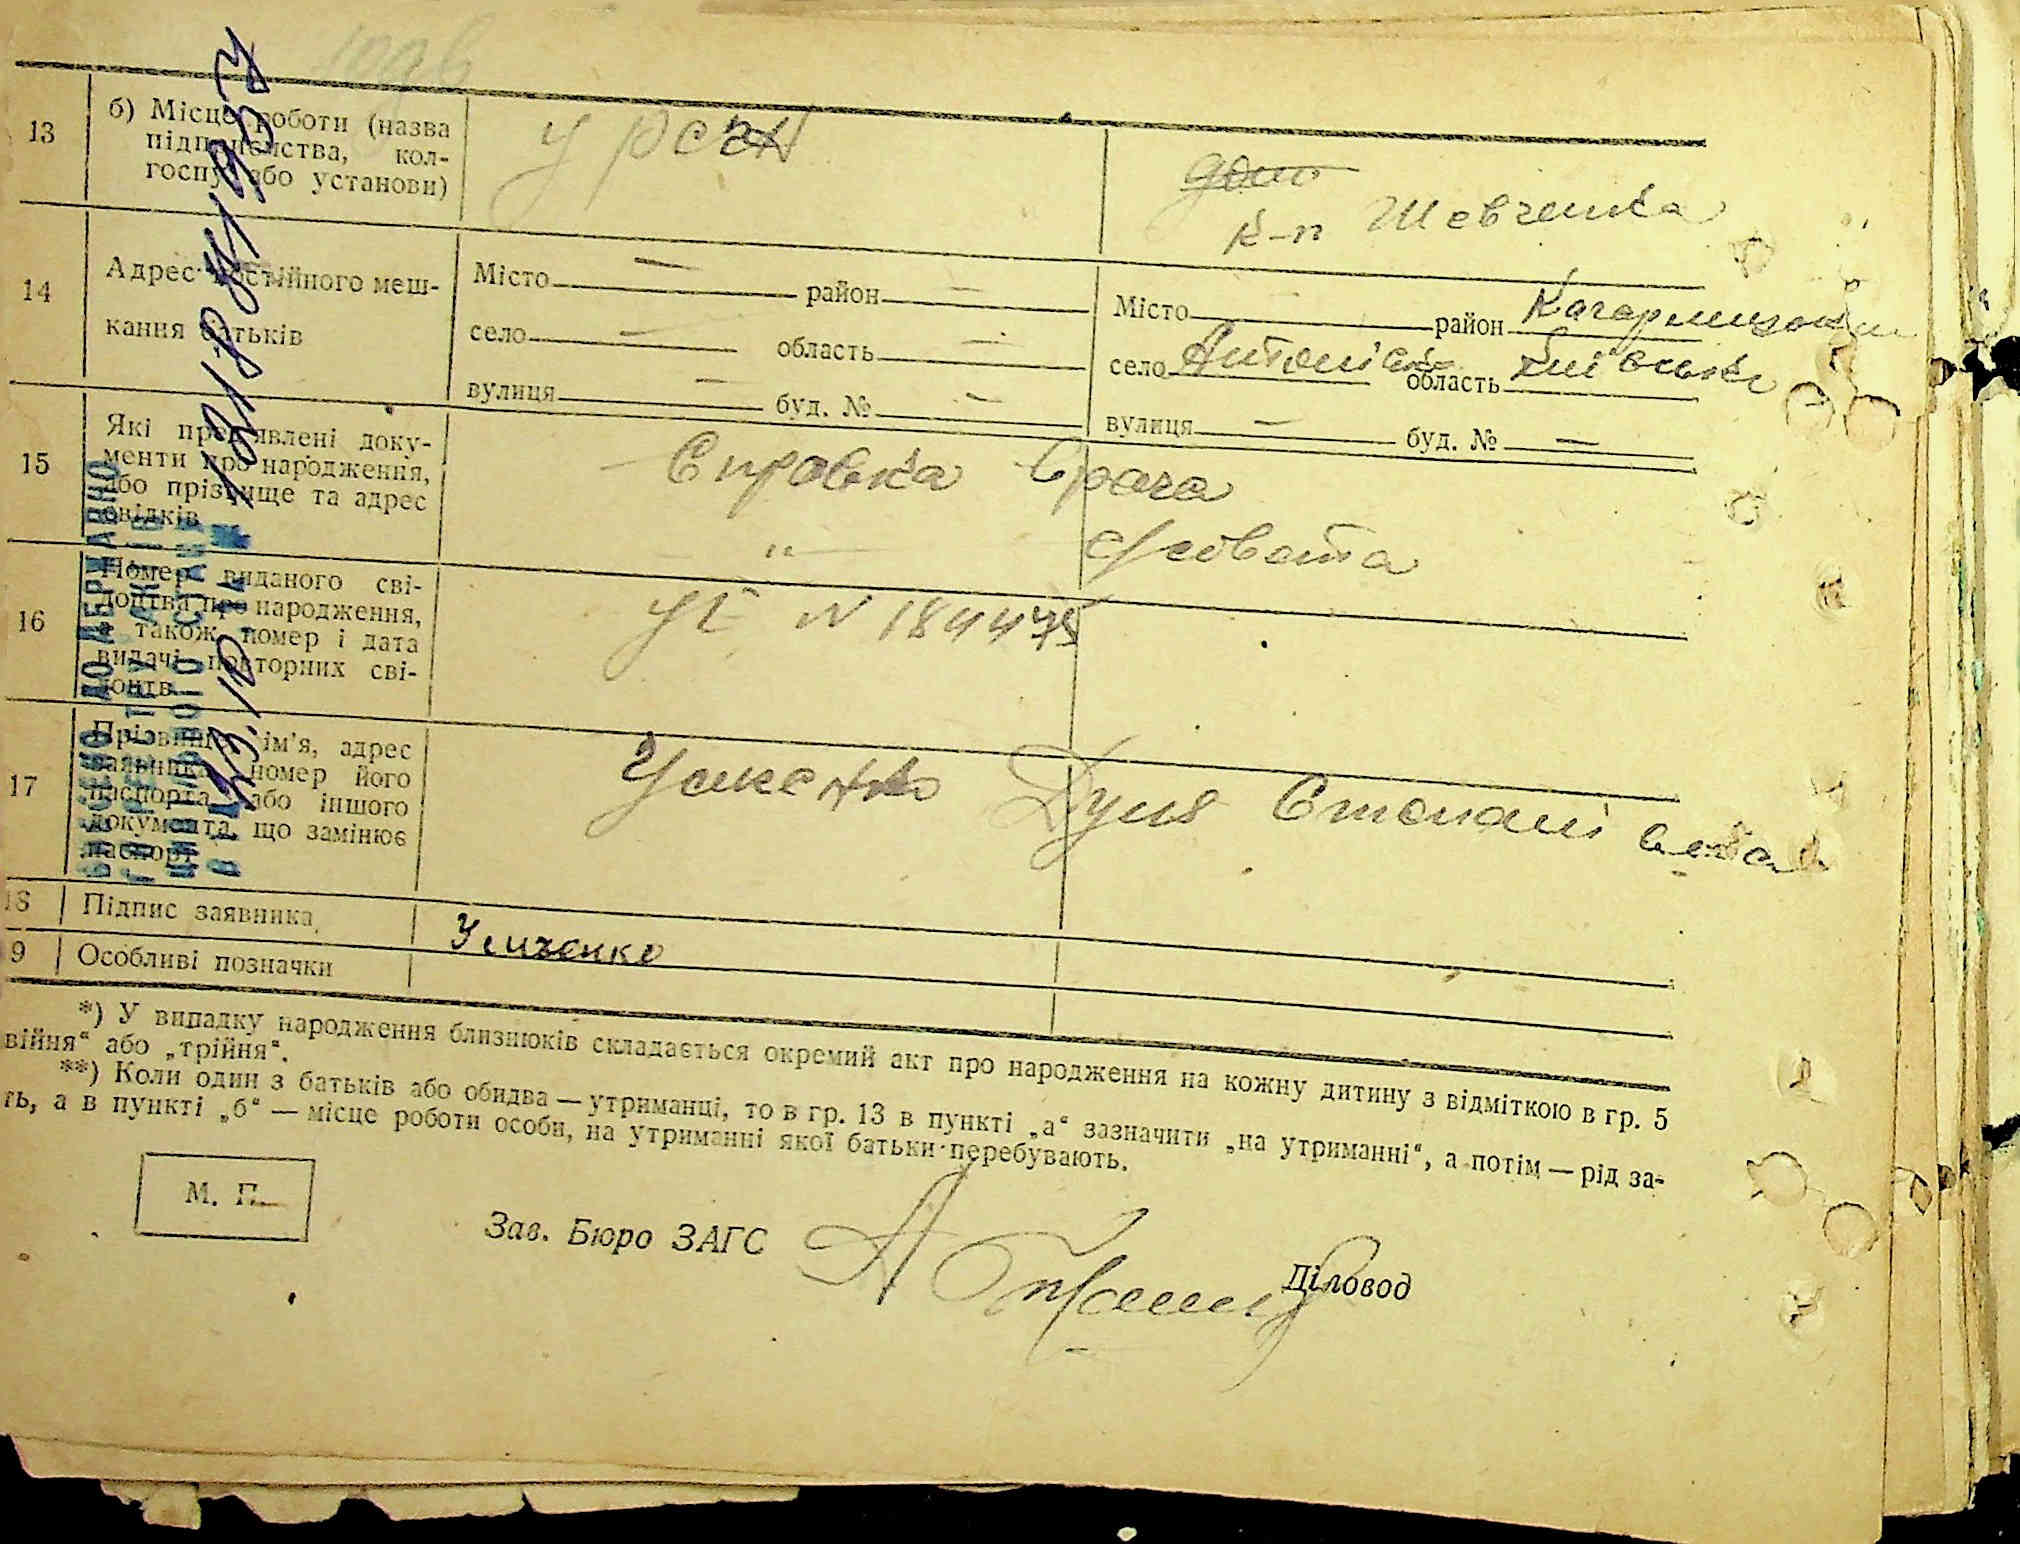 13
б) Місце роботи (назва
підприємства, кол-
госпу або установи)
у рсчА
к-п Шевченка
14
Адрес постійного меш-
кання батьків
Місто — район —
село — область —
вулиця — буд. № —
Місто район
село Антонівка область Київська
вулиця — буд. № —
15
Які пред'явлені доку-
менти про народження,
або прізвище та адрес
свідків
Справка врача
" — с/совета
16
Номер виданого сві-
доцтва про народження,
а також номер і дата
видачі повторних сві-
доцтв
УЕ N 184475
17
Прізвище, ім'я, адрес
заявника, номер його
паспорта або іншого
документа, що замінює
паспорт
Дуня Степанівна
18
Підпис заявника
Усиченко
9
Особливі позначки
*) У випадку народження близнюків складається окремий акт про народження на кожну дитину з відміткою в гр. 5
війня“ або „трійня“.
**) Коли один з батьків або обидва — утриманці, то в гр. 13 в пункті „а“ зазначити „на утриманні“, а потім — рід за-
ть, а в пункті „б“ — місце роботи особи, на утриманні якої батьки перебувають.
М. П.
Зав. Бюро ЗАГС
Діловод
ВНЕСЕНО ДО ДЕРЖАВНО